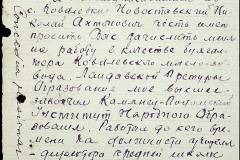 с. Ковалевки Новоставский Ни-
колай Антонович честь имею
просить Вас зачислить меня
на работу в качестве бухгал-
тера Ковалевского масло-за-
вода,
Образование мое высшее -
закончил Каменец-Подольский
Институт Народного Обра-
зования. Работал до сего вре-
мени на должности учителя
и директора средней школы